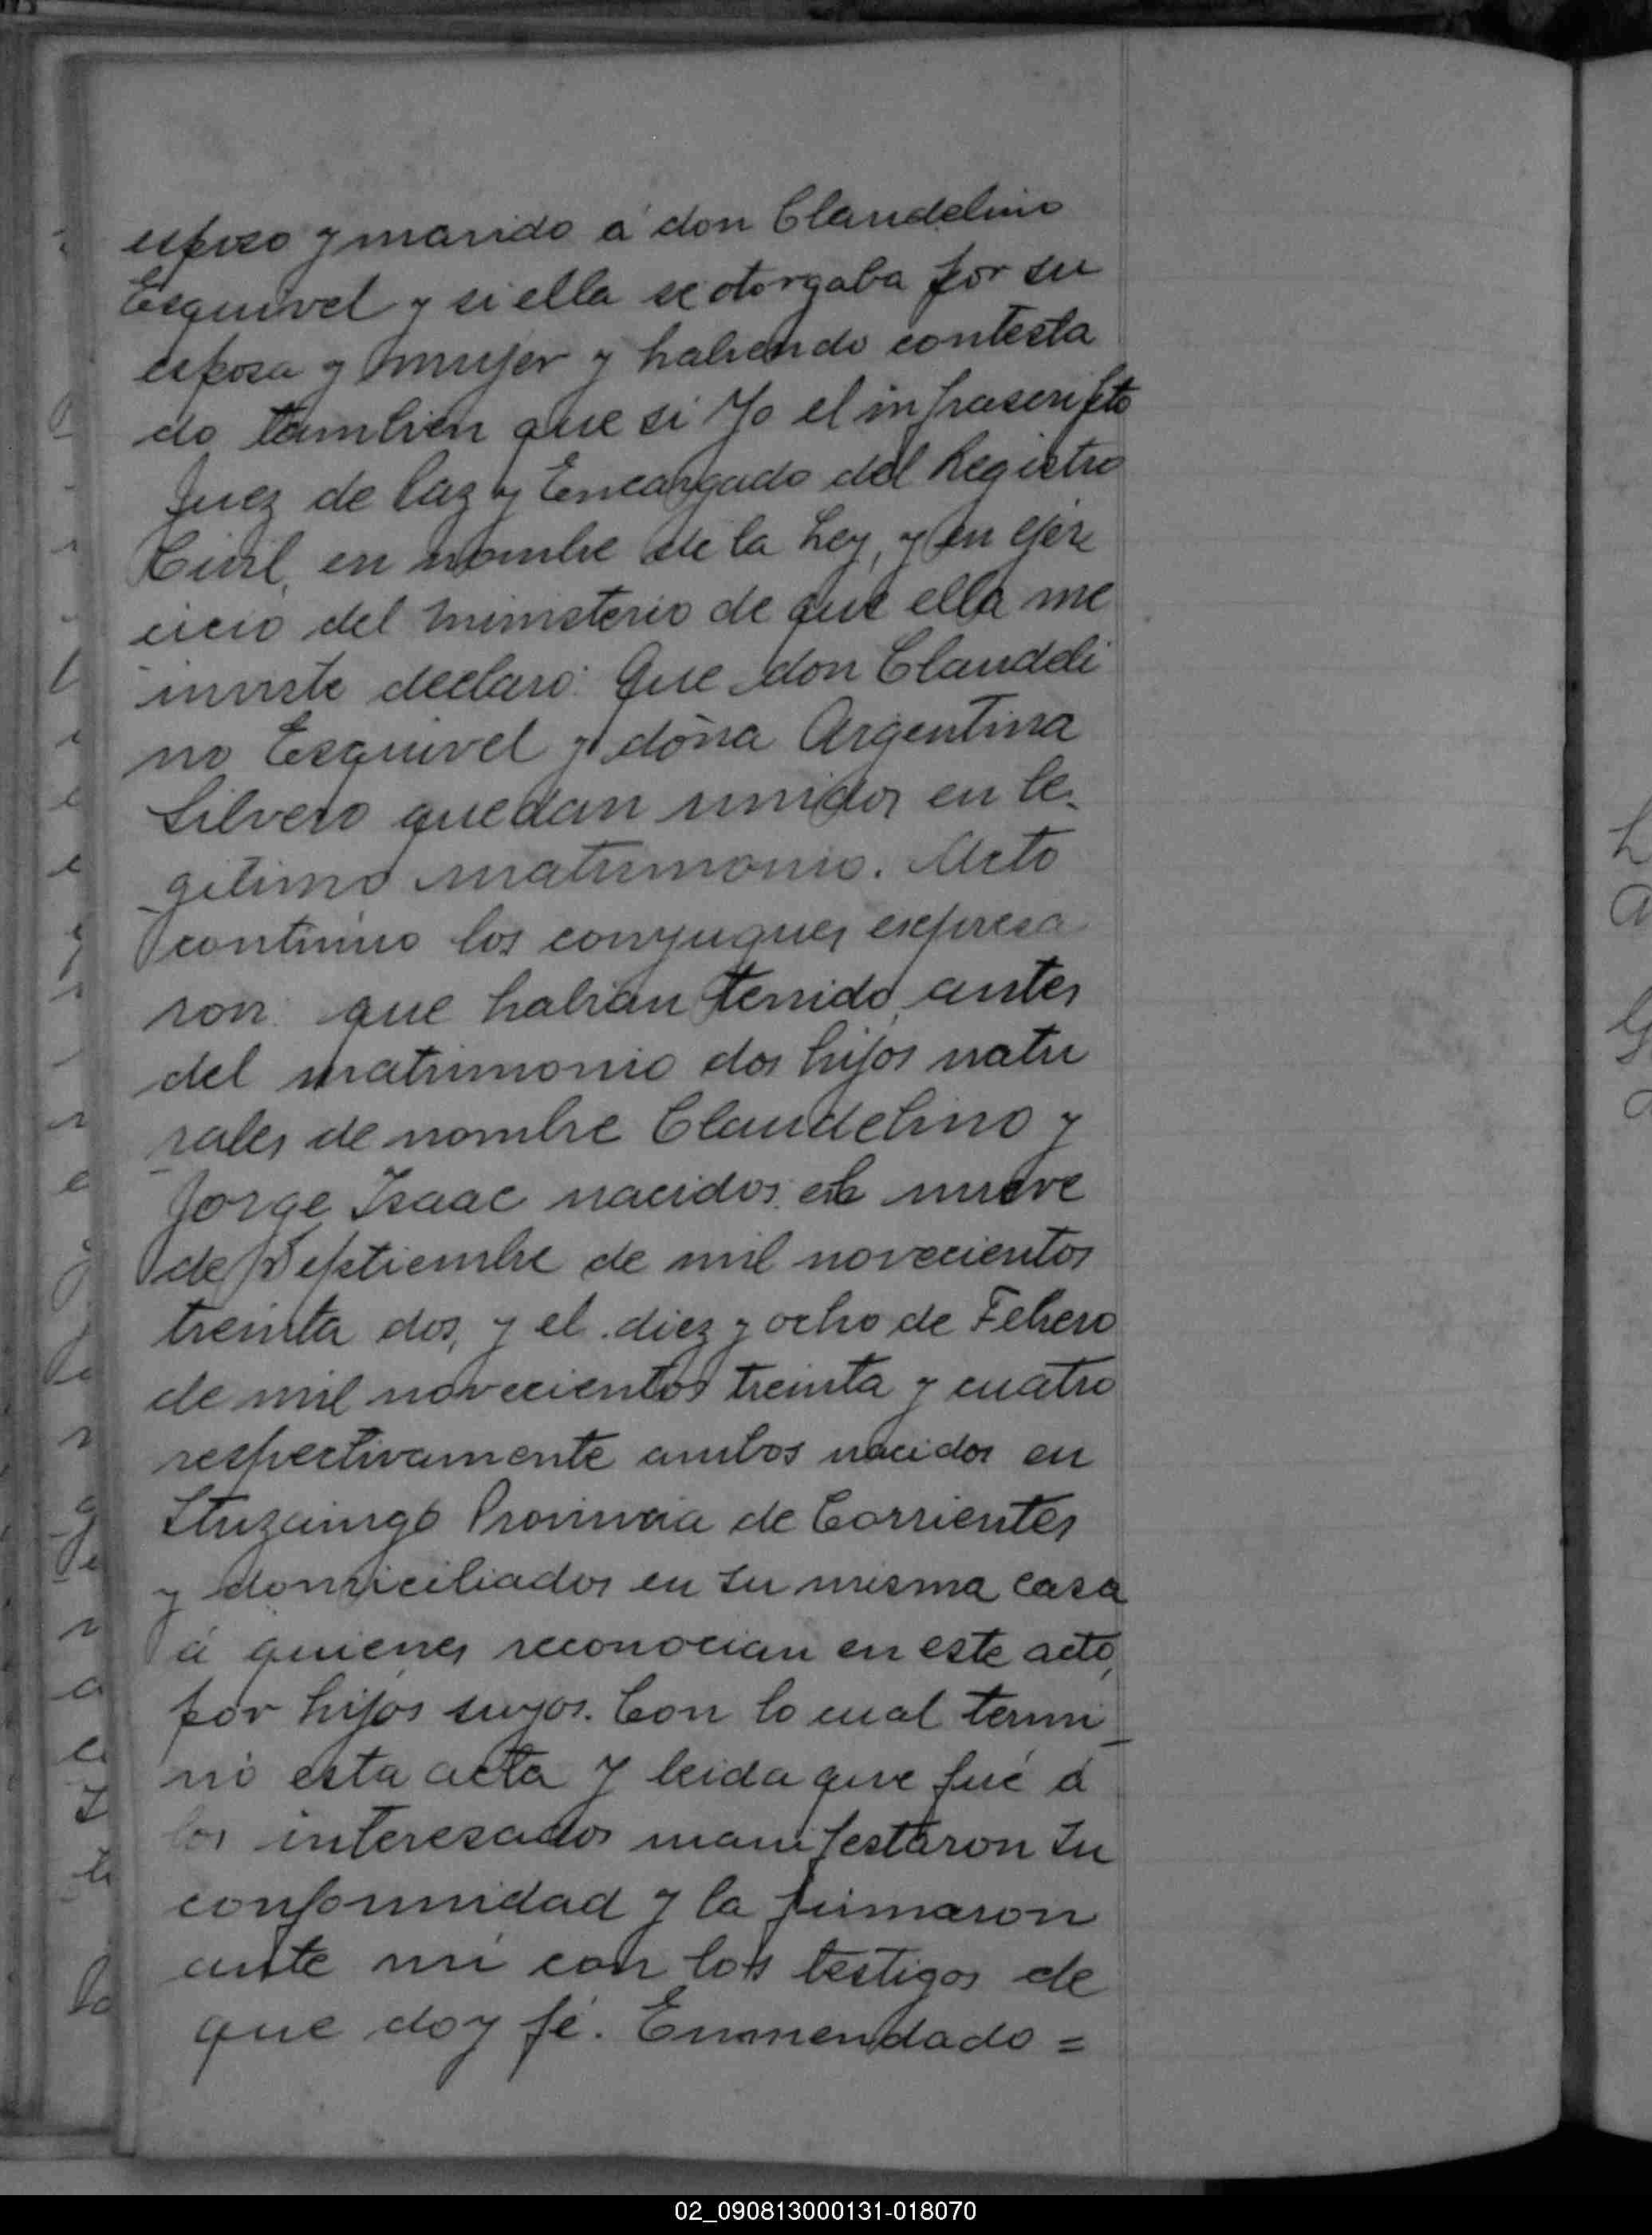 esposo y marido á don Claudelino
Esquivel y si ella se otorgaba por su
esposa y mujer y habiendo contesta
do tambien que si Yo el infrascripto
Juez de Paz y Encargado del Registro
Civil, en nombre de la Ley, y en ejer
cicio del ministerio de que ella me
inviste declaro: Que don Claudeli
no Esquivel y doña Argentina
Silvero quedan unidos en le-
gitimo matrimonio. Acto
continuo los conyugues expresa
ron: que habian tenido, antes
del matrimonio dos hijos natu
rales de nombre Claudelino y
Jorge Isaac nacidos: el nueve
de Septiembre de mil novecientos
treinta dos, y el diez y ocho de Febrero
de mil novecientos treinta y cuatro
respectivamente ambos nacidos en
Ituzaingó Provincia de Corrientes
y domiciliados en su misma casa
á quienes reconocian en este acto,
por hijos suyos. Con lo cual termi-
nó esta acta y leida que fué á
los interesados manifestaron su
conformidad y la firmaron
ante mi con los testigos de
que doy fé. Enmendado =
02_090813000131-018070